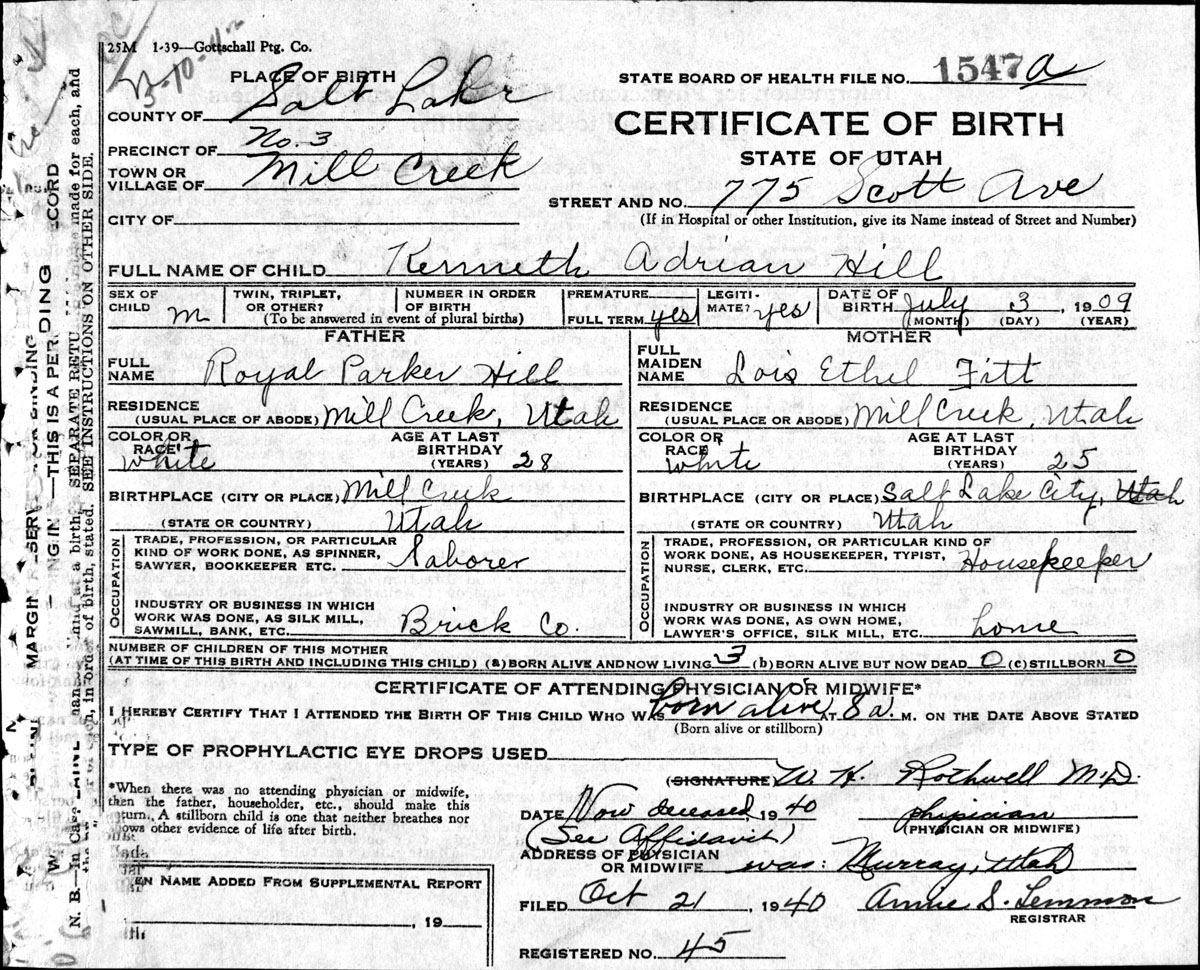 25M 1-39—Gottschall Ptg. Co.
3-10-42
PLACE OF BIRTH
STATE BOARD OF HEALTH FILE NO. 1547 a
COUNTY OF Salt Lake
CERTIFICATE OF BIRTH
PRECINCT OF No. 3
STATE OF UTAH
TOWN OR VILLAGE OF Mill Creek
STREET AND NO. 775 Scott Ave
CITY OF
(If in Hospital or other Institution, give its Name instead of Street and Number)
FULL NAME OF CHILD Kenneth Adrian Hill
SEX OF CHILD m
TWIN, TRIPLET, OR OTHER?
NUMBER IN ORDER OF BIRTH
(To be answered in event of plural births)
PREMATURE
FULL TERM yes
LEGITI-MATE? yes
DATE OF BIRTH July 3, 1909
(MONTH) (DAY) (YEAR)
FATHER
FULL NAME Royal Parker Hill
RESIDENCE (USUAL PLACE OF ABODE) Mill Creek, Utah
COLOR OR RACE White
AGE AT LAST BIRTHDAY (YEARS) 28
BIRTHPLACE (CITY OR PLACE) Mill Creek
(STATE OR COUNTRY) Utah
OCCUPATION
TRADE, PROFESSION, OR PARTICULAR KIND OF WORK DONE, AS SPINNER, SAWYER, BOOKKEEPER ETC. Laborer
INDUSTRY OR BUSINESS IN WHICH WORK WAS DONE, AS SILK MILL, SAWMILL, BANK, ETC. Brick Co.
MOTHER
FULL MAIDEN NAME Lois Ethel Fitt
RESIDENCE (USUAL PLACE OR ABODE) Mill Creek, Utah
COLOR OR RACE White
AGE AT LAST BIRTHDAY (YEARS) 25
BIRTHPLACE (CITY OR PLACE) Salt Lake City, Utah
(STATE OR COUNTRY) Utah
OCCUPATION
TRADE, PROFESSION, OR PARTICULAR KIND OF WORK DONE, AS HOUSEKEEPER, TYPIST, NURSE, CLERK, ETC. Housekeeper
INDUSTRY OR BUSINESS IN WHICH WORK WAS DONE, AS OWN HOME, LAWYER'S OFFICE, SILK MILL, ETC. home
NUMBER OF CHILDREN OF THIS MOTHER
(AT TIME OF THIS BIRTH AND INCLUDING THIS CHILD) (a) BORN ALIVE AND NOW LIVING 3 (b) BORN ALIVE BUT NOW DEAD 0 (c) STILLBORN 0
CERTIFICATE OF ATTENDING PHYSICIAN OR MIDWIFE*
I HEREBY CERTIFY THAT I ATTENDED THE BIRTH OF THIS CHILD WHO WAS born alive AT 8 a. M. ON THE DATE ABOVE STATED
(Born alive or stillborn)
TYPE OF PROPHYLACTIC EYE DROPS USED
(SIGNATURE W. H. Rothwell M.D.
*When there was no attending physician or midwife,
then the father, householder, etc., should make this
turn. A stillborn child is one that neither breathes nor
ows other evidence of life after birth.
DATE Now deceased, 1940 phisician
(See Affidavit) (PHYSICIAN OR MIDWIFE)
ADDRESS OF PHYSICIAN OR MIDWIFE was: Murray, Utah
EN NAME ADDED FROM SUPPLEMENTAL REPORT
, 19
FILED Oct 21, 1940 Annie S. Lemmon
REGISTRAR
REGISTERED NO. 45
MARGIN
BINDING
—THIS IS A PER
ECORD
N. B.—In Cas
at a birth
SEPARATE RETU
made for each, and
of birth, stated. SEE INSTRUCTIONS ON OTHER SIDE.